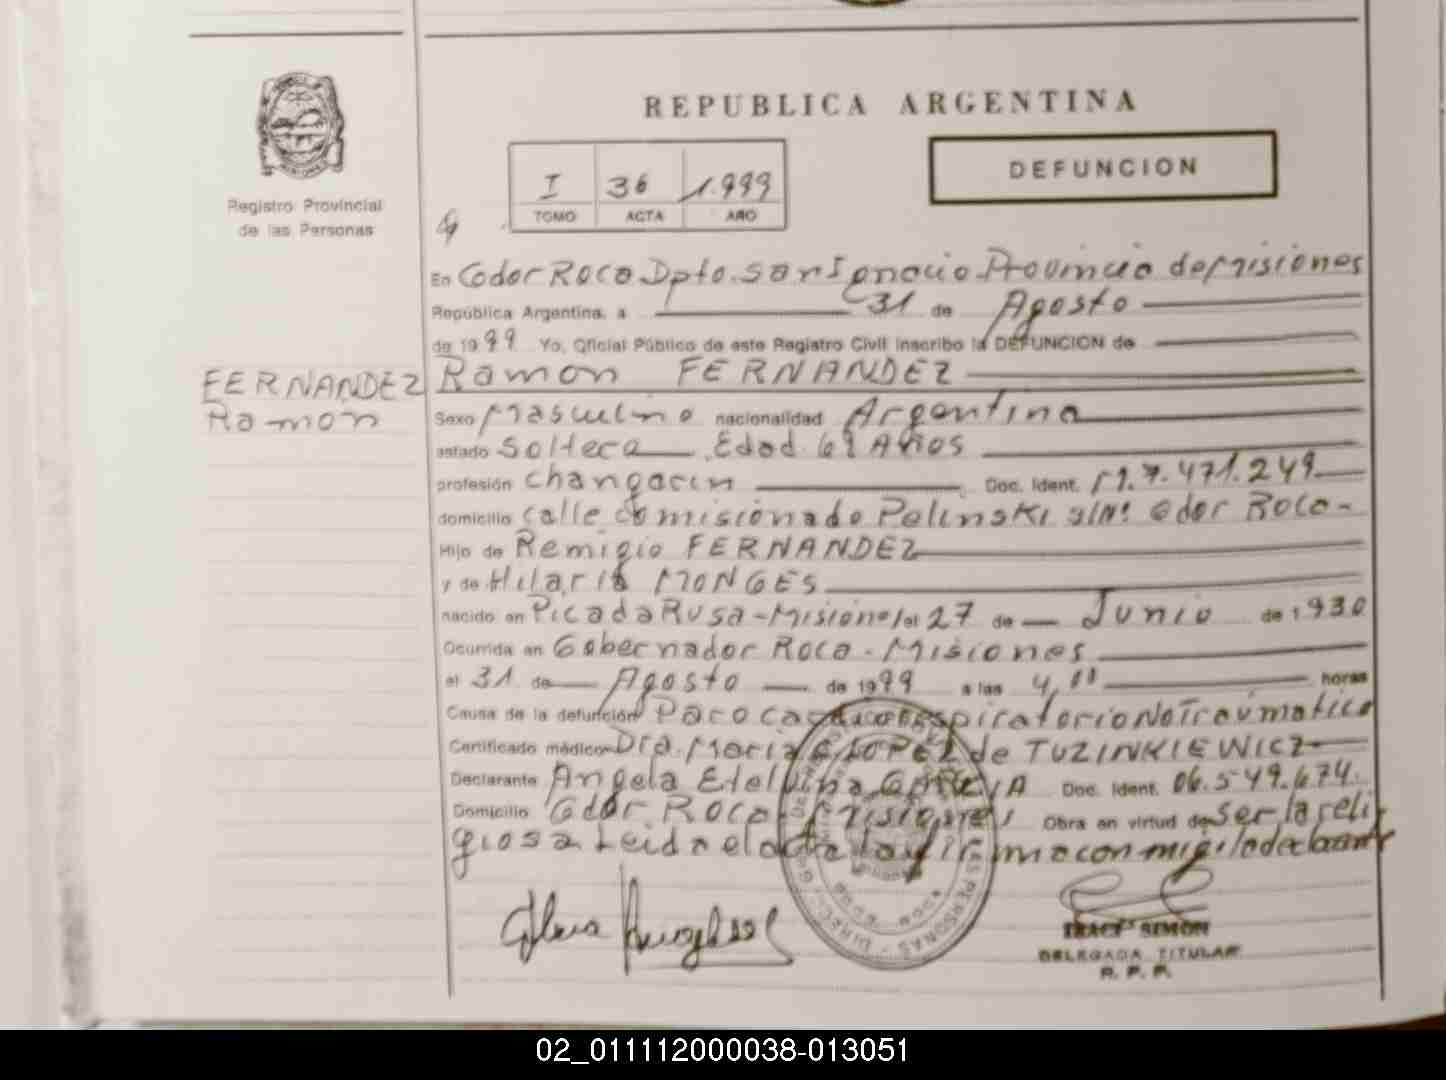 REPUBLICA ARGENTINA
I 36 1.999
TOMO ACTA AÑO
DEFUNCION
Registro Provincial
de las Personas
En Gdor Roca Dpto. San Ignacio Provincia de Misiones
República Argentina, a 31 de Agosto
de 1999 Yo, Oficial Público de este Registro Civil inscribo la DEFUNCION de
FERNANDEZ
Ramon
Ramon FERNANDEZ
Sexo Masculino nacionalidad Argentina
estado Soltero Edad. 69 Años
profesión Changarin Doc. Ident. M.7.471.249
domicilio calle Comisionado Pelinski s/Nº Gdor Roca-
Hijo de Remigio FERNANDEZ
y de Hilaria MONGES
nacido en Picada Rusa-Misiones el 27 de Junio de 1930
Ocurrida en Gobernador Roca-Misiones
el 31 de Agosto de 1999 a las 4,00 horas
Causa de la defunción Paro cardiorespiratorio No Traumatico
Certificado médico Dra. Maria LOPEZ de TUZINKIEWICZ
Declarante Angela Etelvina Doc. Ident. 06.549.674.
Domicilio Gdor. Roca-Misiones Obra en virtud de ser la reli
giosa Leida el acta la firma conmigo la declarante
TRACY SIMON
DELEGADA TITULAR
R. P. P.
02_011112000038-013051